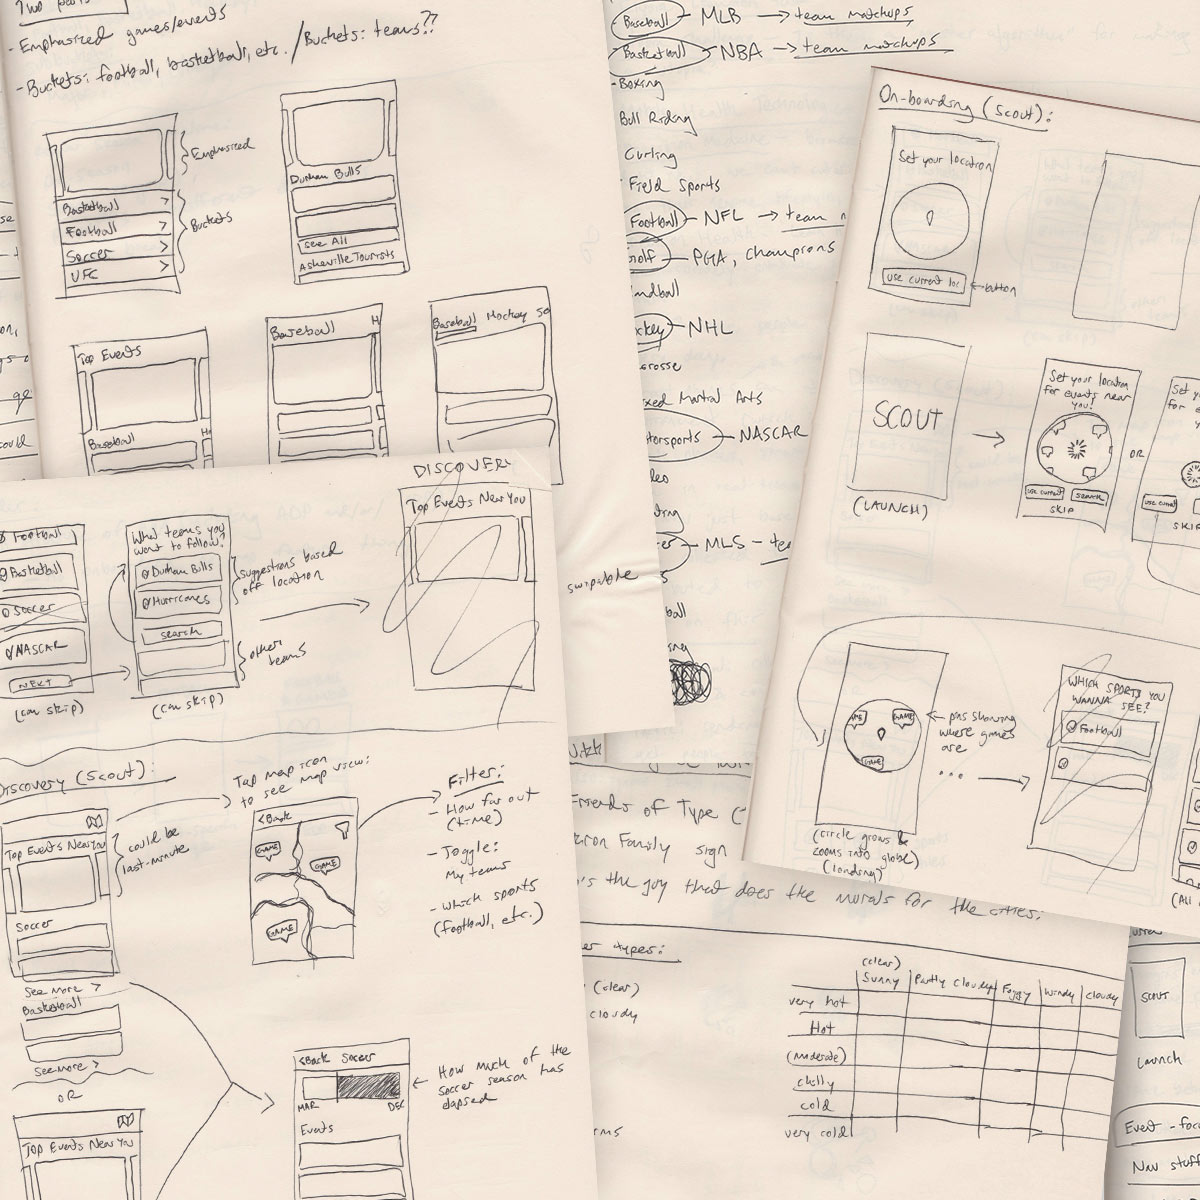 Two
- Emphasized games/events
- Buckets: football, basketball, etc. / Buckets: teams??
Emphasized
Basketball >
Football >
Soccer >
UFC >
Buckets
Durham Bulls
See All
Asheville Tourists
Top Events
Baseball
Baseball H
Baseball Hockey So
Baseball - MLB → team matchups
Basketball - NBA → team matchups
- Boxing
Bull Riding
Curling
Field Sports
Football - NFL → team
Golf - PGA, champions
NHL
Martial Arts
NASCAR
MLS -
On-boarding (Scout):
Set your location
use current loc
← button
SCOUT
(LAUNCH)
Set your location
for events near
you!
use current
search
SKIP
OR
GAME
GAME
← pins showing
where games
are
...
(circle grows &
zooms into globe)
(landing)
WHICH SPORTS YOU
WANNA SEE?
Football
DISCOVERY
Top Events Near You
swipable
Football
Basketball
Soccer
NASCAR
NEXT
(can skip)
What teams you
want to follow?
Durham Bulls
Hurricanes
search
(can skip)
suggestions based
off location
other
teams
Discovery (Scout):
Top Events Near You
could be
last-minute
Soccer
See More >
Basketball
See more >
OR
Top Events Near You
Tap map icon
to see map view:
<Back
GAME
GAME
GAME
Filter:
- How far out
(time)
- Toggle:
My teams
- which sports
(football, etc.)
<Back Soccer
MAR DEC
Events
← How much of the
soccer season has
elapsed
Friends of Type
Family sign
the guy that does the murals for the cities.
types:
(clear)
cloudy
(clear)
Sunny Partly Cloudy Foggy Windy Cloudy
very hot
Hot
(moderate)
chilly
cold
very cold
SCOUT
Launch
Event - foc
Nav stuff